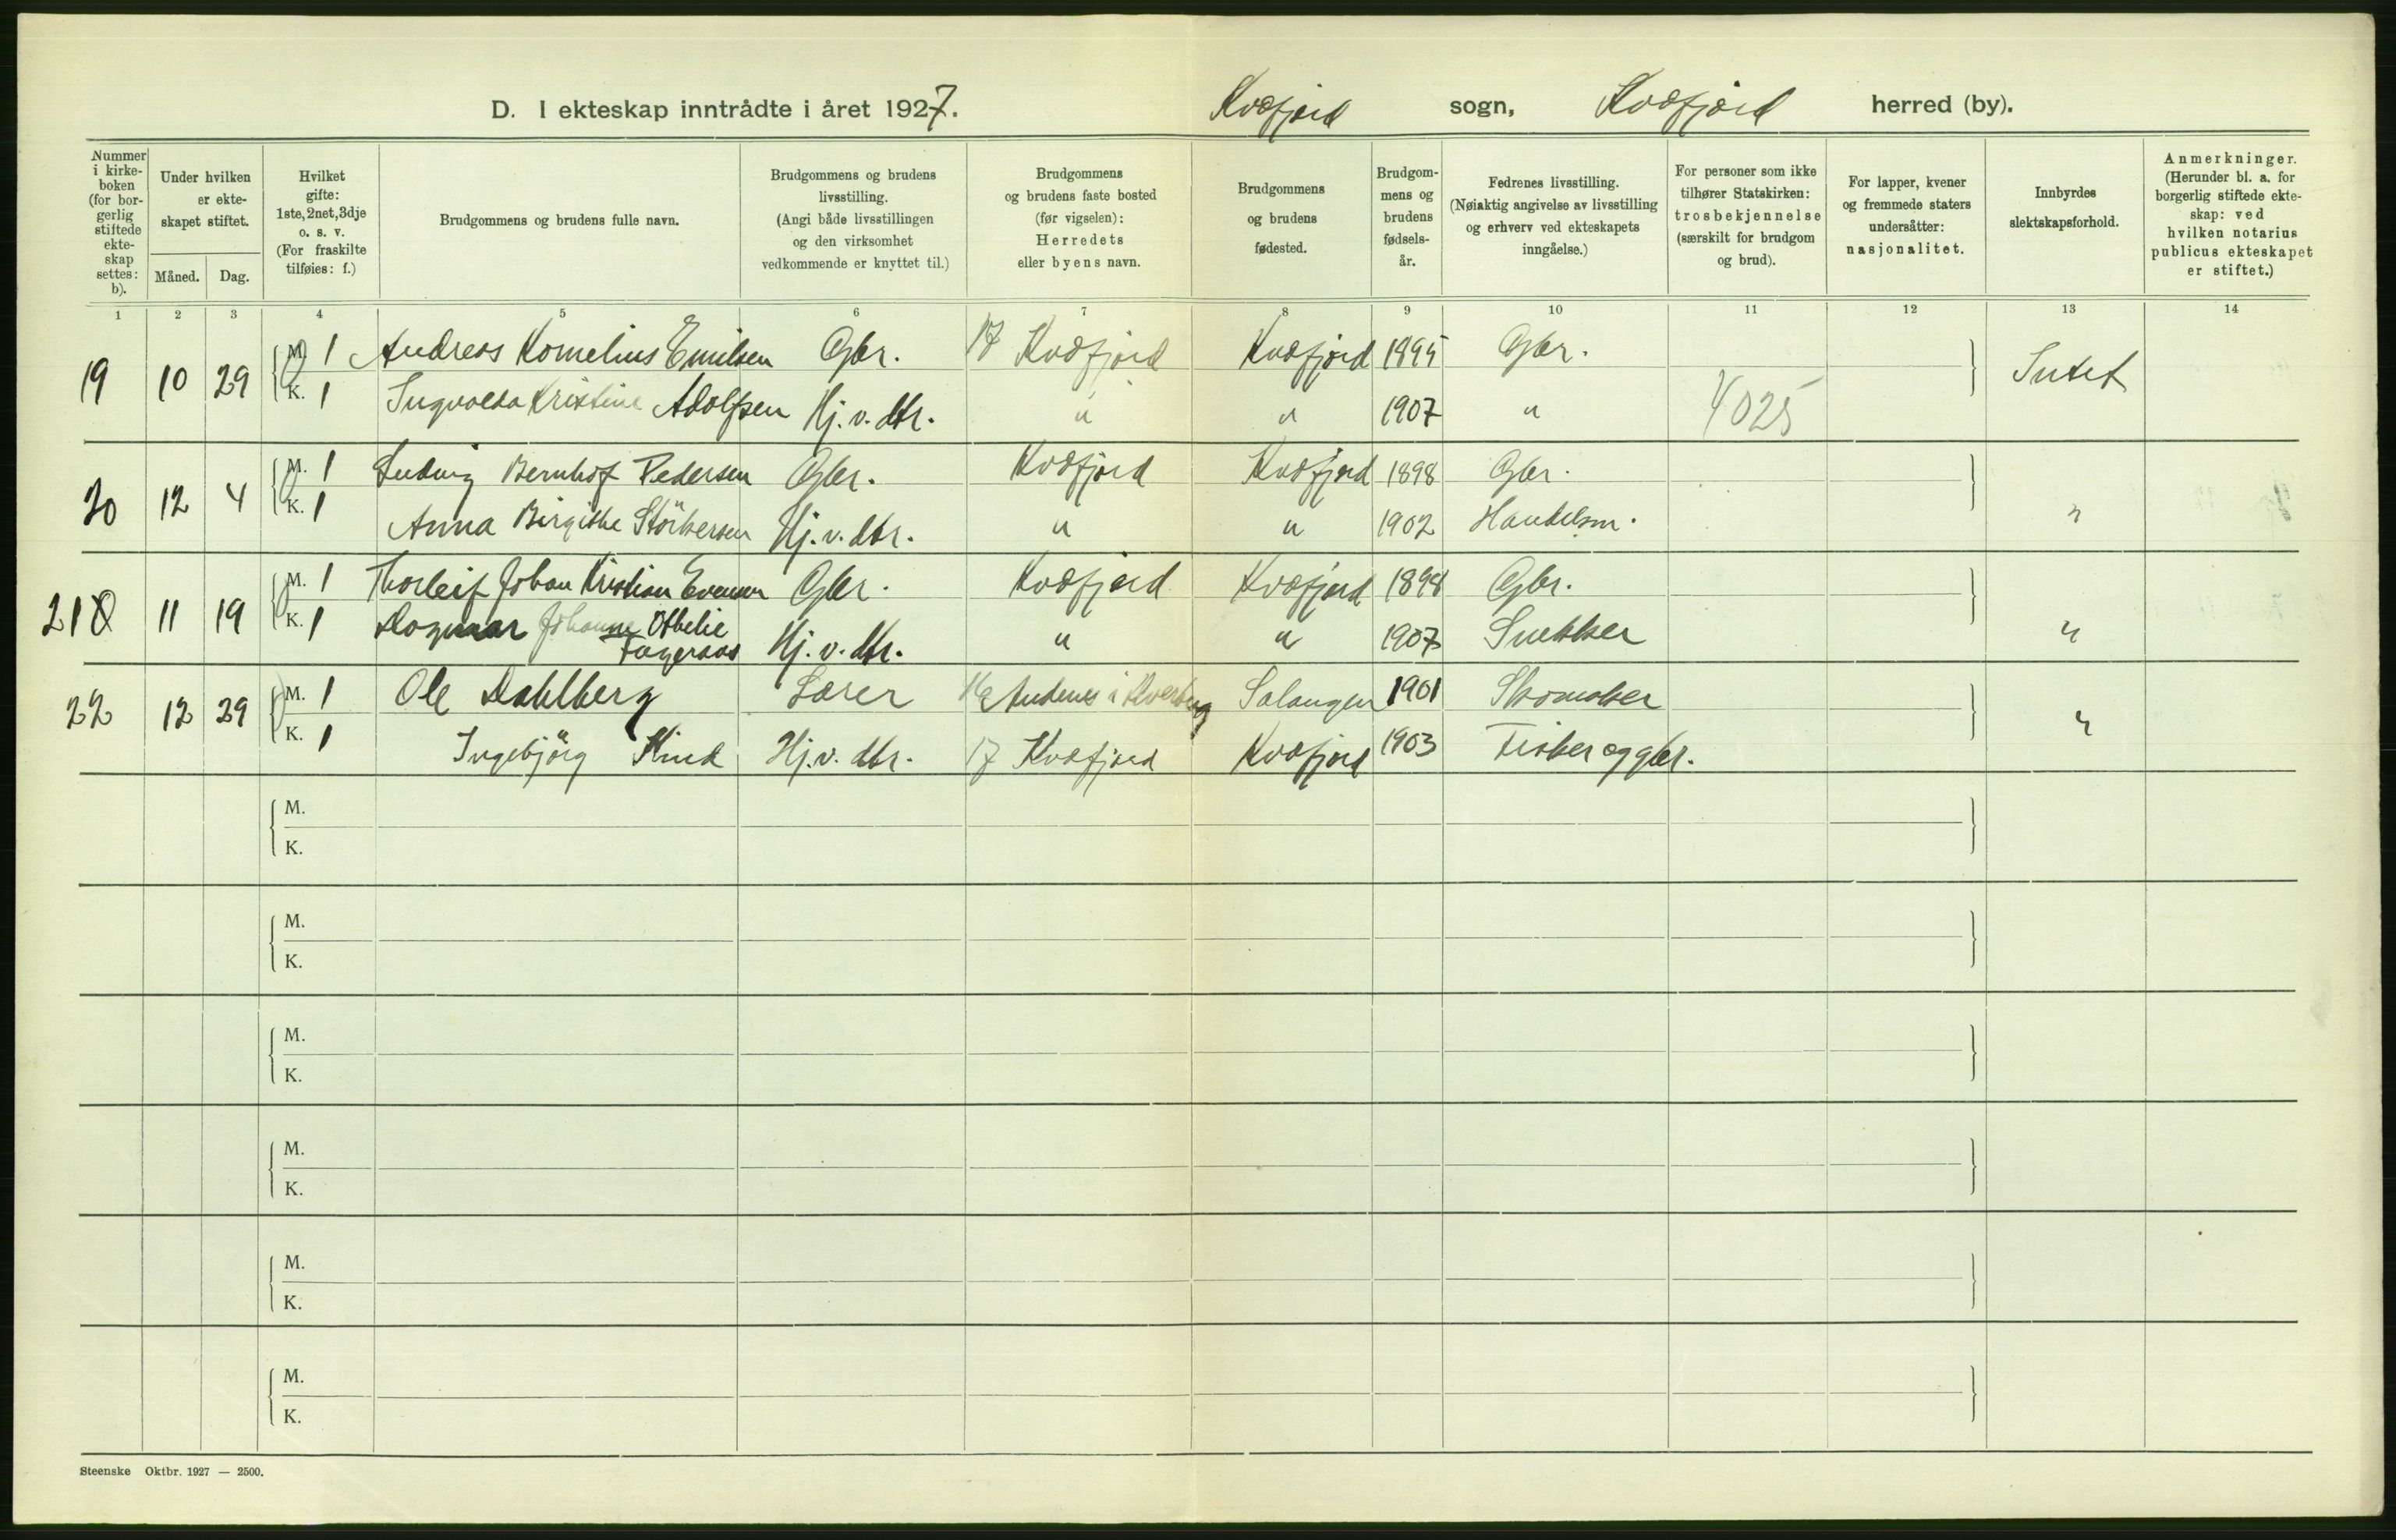 D. I ekteskap inntrådte i året 1927. Kvæfjord sogn, Kvæfjord herred (by).
Nummer i kirkeboken (for borgerlig stiftede ekteskap settes: b).
Under hvilken er ekteskapet stiftet.
Måned. Dag.
Hvilket gifte: 1ste, 2net, 3dje o. s. v. (For fraskilte tilføies: f.)
Brudgommens og brudens fulle navn.
Brudgommens og brudens livsstilling. (Angi både livsstillingen og den virksomhet vedkommende er knyttet til.)
Brudgommens og brudens faste bosted (før vigselen): Herredets eller byens navn.
Brudgommens og brudens fødested.
Brudgommens og brudens fødselsår.
Fedrenes livsstilling. (Nøiaktig angivelse av livsstilling og erhverv ved ekteskapets inngåelse.)
For personer som ikke tilhører Statskirken: trosbekjennelse (særskilt for brudgom og brud).
For lapper, kvener og fremmede staters undersåtter: nasjonalitet.
Innbyrdes slektskapsforhold.
Anmerkninger. (Herunder bl. a. for borgerlig stiftede ekteskap: ved hvilken notarius publicus ekteskapet er stiftet.)
1 2 3 4 5 6 7 8 9 10 11 12 13 14
19 10 29 M. 1 Andreas Kornelius Emilsen Gbr. 17 Kvæfjord Kvæfjord 1895 Gbr. Intet
K. 1 Ingvalda Kristine Adolfsen Hj. v. dtr. " " 1907 " 4025
20 12 4 M. 1 Ludvig Bernhof Pedersen Gbr. Kvæfjord Kvæfjord 1898 Gbr.
K. 1 Anna Birgithe Störkersen Hj. v. dtr. " " 1902 Handelsm. "
21 11 19 M. 1 Thorleif Johan Kristian Evensen Gbr. Kvæfjord Kvæfjord 1898 Gbr.
K. 1 Dagmar Johanne Othelie Fageraas Hj. v. dtr. " " 1907 Snekker "
22 12 29 M. 1 Ole Dahlberg Lærer Andenes i Salangen 1901 Skomaker
K. 1 Ingebjörg Kind Hj. v. dtr. 17 Kvæfjord Kvæfjord 1903 Fisker og gbr. "
M.
K.
M.
K.
M.
K.
M.
K.
M.
K.
M.
K.
Steenske Oktbr. 1927 — 2500.